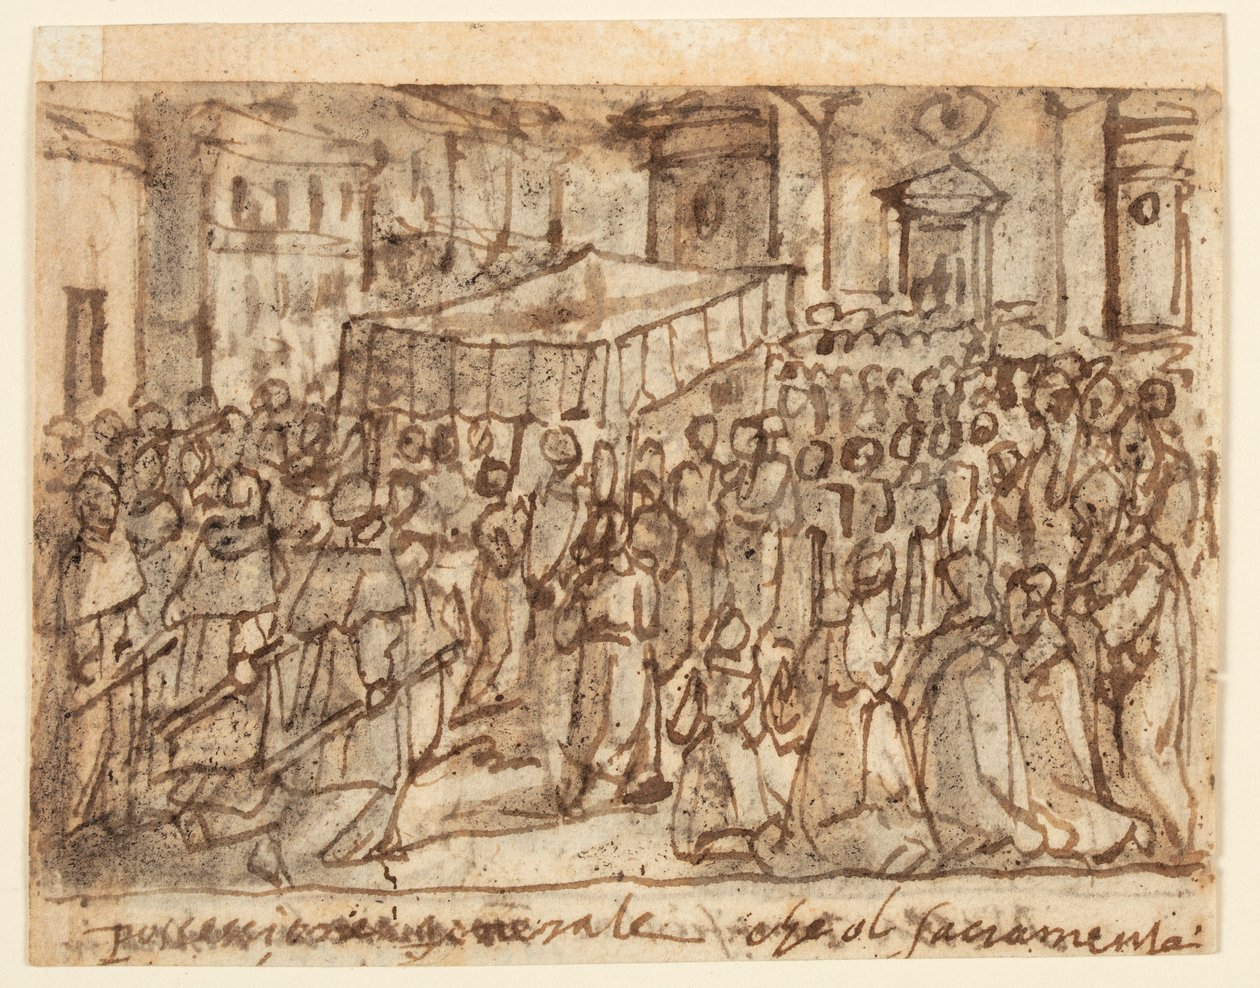 possessione generale che ol sacramenta